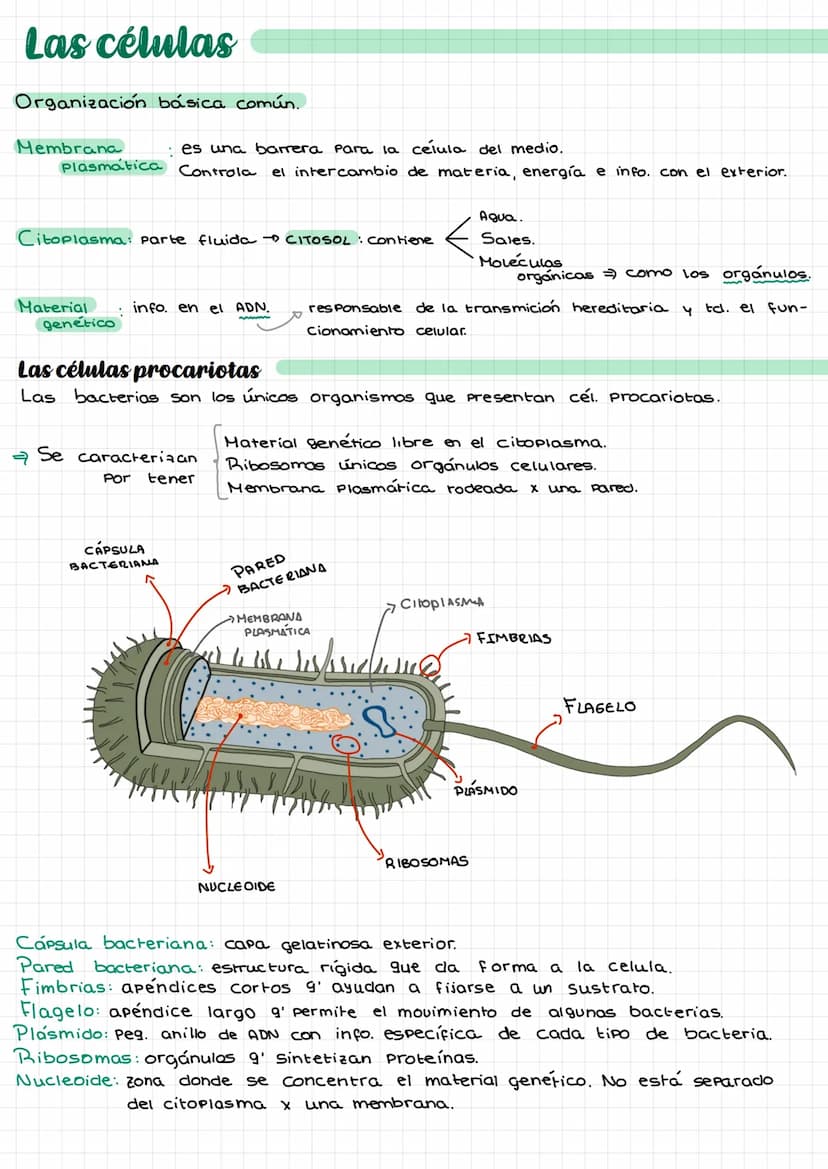 Las células
Organización básica común.
Membrana plasmática : es una barrera para la célula del medio.
Controla el intercambio de materia, energía e info. con el exterior.
Citoplasma: parte fluida → CITOSOL : contiene
Agua.
Sales.
Moléculas
orgánicas ⇒ como los orgánulos.
Material genético : info. en el ADN. responsable de la transmición hereditaria y td. el fun-
cionamiento celular.
Las células procariotas
Las bacterias son los únicos organismos que presentan cél. procariotas.
⇒ Se caracterizan
por tener
Material genético libre en el citoplasma.
Ribosomos únicos orgánulos celulares.
Membrana plasmática rodeada x una pared.
CÁPSULA
BACTERIANA
PARED
BACTERIANA
MEMBRANA
PLASMÁTICA
CITOPLASMA
FIMBRIAS
FLAGELO
PLÁSMIDO
RIBOSOMAS
NUCLEOIDE
Cápsula bacteriana: capa gelatinosa exterior.
Pared bacteriana: estructura rígida que da forma a la celula.
Fimbrias: apéndices cortos q' ayudan a fijarse a un sustrato.
Flagelo: apéndice largo q' permite el movimiento de algunas bacterias.
Plásmido: Peq. anillo de ADN con info. específica de cada tipo de bacteria.
Ribosomas: orgánulos q' sintetizan proteínas.
Nucleoide: zona donde se concentra el material genético. No está separado
del citoplasma x una membrana.